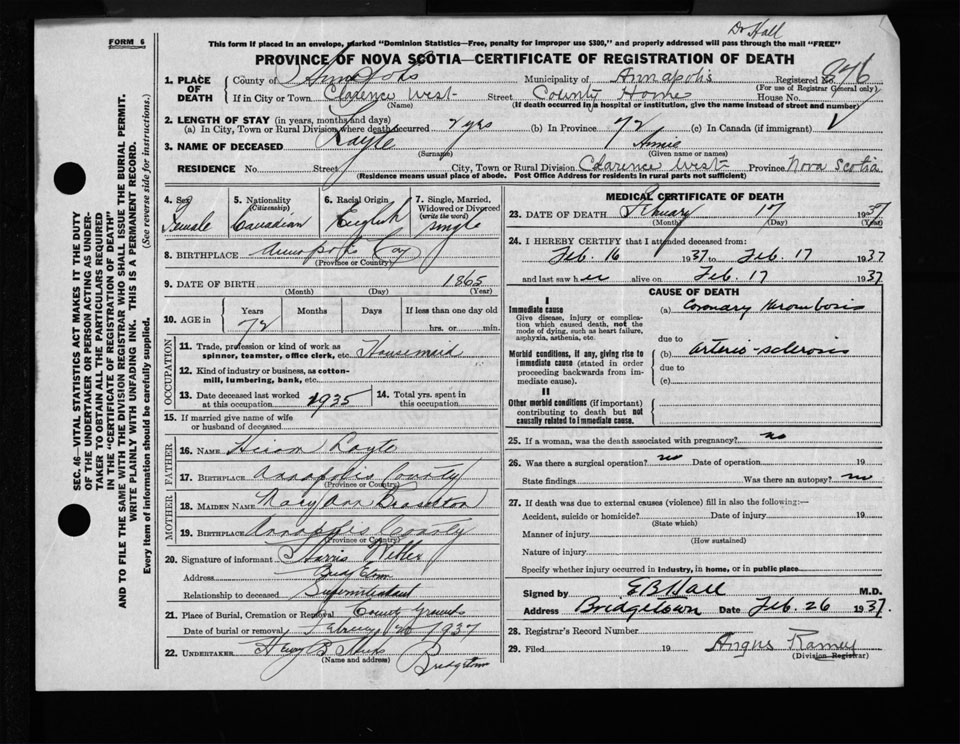 Dr Hall
FORM 6
This form if placed in an envelope, marked "Dominion Statistics—Free, penalty for improper use $300," and properly addressed will pass through the mail "FREE"
PROVINCE OF NOVA SCOTIA—CERTIFICATE OF REGISTRATION OF DEATH
1. PLACE OF DEATH County of Annapolis Municipality of Annapolis Registered No. 876
(For use of Registrar General only)
If in City or Town Clarence West Street County Home House No.
(Name) (If death occurred in a hospital or institution, give the name instead of street and number)
2. LENGTH OF STAY (in years, months and days)
(a) In City, Town or Rural Division where death occurred 2 yrs (b) In Province 72 (c) In Canada (if immigrant)
3. NAME OF DECEASED Annie
(Surname) (Given name or names)
RESIDENCE No. Street City, Town or Rural Division Clarence West Province Nova Scotia
(Residence means usual place of abode. Post Office Address for residents in rural parts not sufficient)
4. Sex Female
5. Nationality (Citizenship) Canadian
6. Racial Origin English
7. Single, Married, Widowed or Divorced (write the word) Single
8. BIRTHPLACE Annapolis Coy
(Province or Country)
9. DATE OF BIRTH 1865
(Month) (Day) (Year)
10. AGE in Years Months Days If less than one day
72 hrs. or min.
OCCUPATION
11. Trade, profession or kind of work as spinner, teamster, office clerk, etc. Housemaid
12. Kind of industry or business, as cotton-mill, lumbering, bank, etc.
13. Date deceased last worked at this occupation 1935 14. Total yrs. spent in this occupation
15. If married give name of wife or husband of deceased
FATHER
16. NAME Hiram
17. BIRTHPLACE Annapolis County
(Province or Country)
MOTHER
18. MAIDEN NAME Mary Ann
19. BIRTHPLACE Annapolis County
(Province or Country)
20. Signature of informant Harris
Address
Relationship to deceased Superintendant
21. Place of Burial, Cremation or Removal County Grounds
Date of burial or removal February 1937
22. UNDERTAKER Bridgetown
(Name and address)
MEDICAL CERTIFICATE OF DEATH
23. DATE OF DEATH February 17 1937
(Month) (Day) (Year)
24. I HEREBY CERTIFY that I attended deceased from:
Feb. 16 1937 to Feb. 17 1937
and last saw her alive on Feb. 17 1937
CAUSE OF DEATH
I
Immediate cause
Give disease, injury or complication which caused death, not the mode of dying, such as heart failure, asphyxia, asthenia, etc.
(a) Coronary thrombosis
due to
Morbid conditions, if any, giving rise to immediate cause (stated in order proceeding backwards from immediate cause).
(b) arterio-sclerosis
due to
(c)
II
Other morbid conditions (if important) contributing to death but not causally related to immediate cause.
25. If a woman, was the death associated with pregnancy? no
26. Was there a surgical operation? no Date of operation 19
State findings Was there an autopsy? no
27. If death was due to external causes (violence) fill in also the following:—
Accident, suicide or homicide? Date of injury 19
(State which)
Manner of injury
(How sustained)
Nature of injury
Specify whether injury occurred in industry, in home, or in public place
Signed by E B Hall M.D.
Address Bridgetown Date Feb. 26 1937.
28. Registrar's Record Number
29. Filed 19 Angus Ramey
(Division Registrar)
SEC. 46—VITAL STATISTICS ACT MAKES IT THE DUTY
OF THE UNDERTAKER OR PERSON ACTING AS UNDER-
TAKER TO OBTAIN ALL THE PARTICULARS REQUIRED
IN THE "CERTIFICATE OF REGISTRATION OF DEATH"
AND TO FILE THE SAME WITH THE DIVISION REGISTRAR WHO SHALL ISSUE THE BURIAL PERMIT.
WRITE PLAINLY WITH UNFADING INK. THIS IS A PERMANENT RECORD.
Every item of information should be carefully supplied. (See reverse side for instructions.)